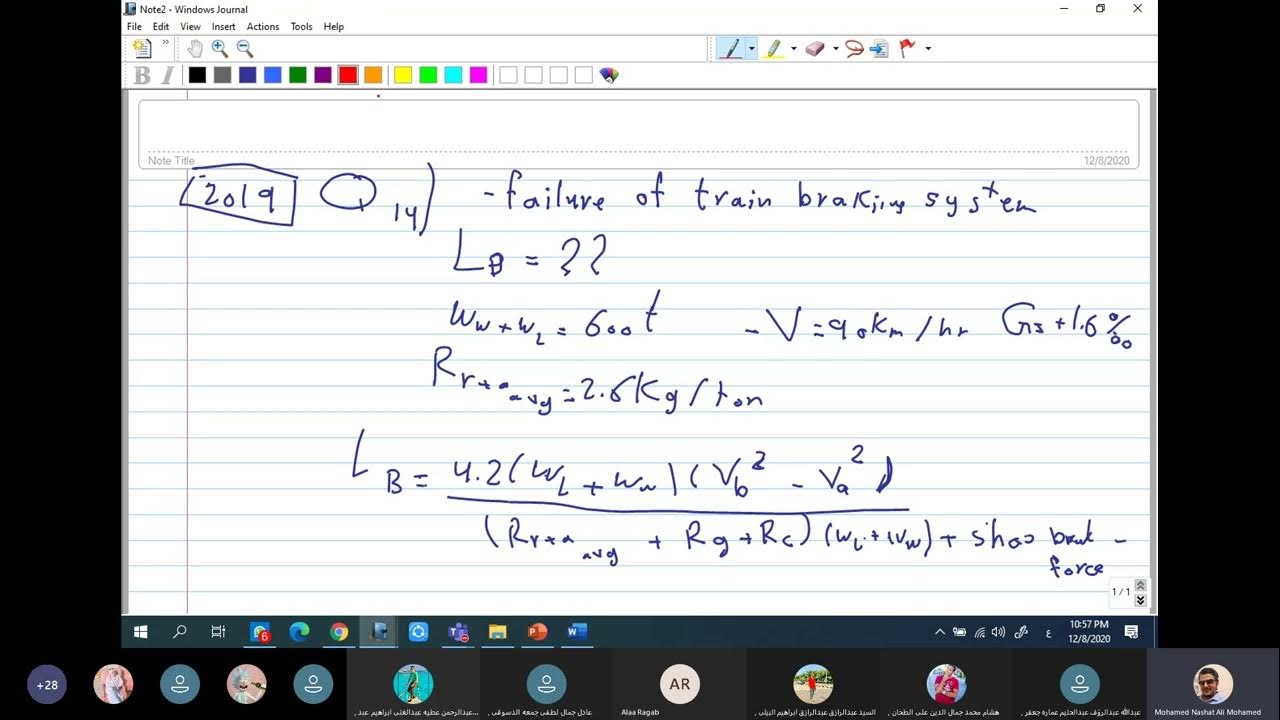 Note2 - Windows Journal
File Edit View Insert Actions Tools Help
B I
Note Title
12/8/2020
2019 Q 14) - failure of train braking system
L_B = ??
W_w + W_L = 600 t - V = 90 km/hr G = +1.6 ‰
R_r+a avg = 2.6 Kg/ton
L_B = 4.2 (W_L + W_w) (V_b² - V_a²)
(R_r+a avg + R_g + R_c) (W_L + W_w) + shoe
force
1 / 1
6
ع
10:57 PM
12/8/2020
+28
عبدالرحمن عطيه عبدالغلى ابراهيم عبد...
عادل جمال لطفى جمعه الدسوقى
AR
Alaa Ragab
السيد عبدالرازق عبدالرازق ابراهيم البيلى
هشام محمد جمال الدين على الطحان
عبدالله عبدالروف عبدالحليم عماره جعفر
Mohamed Nashat Ali Mohamed